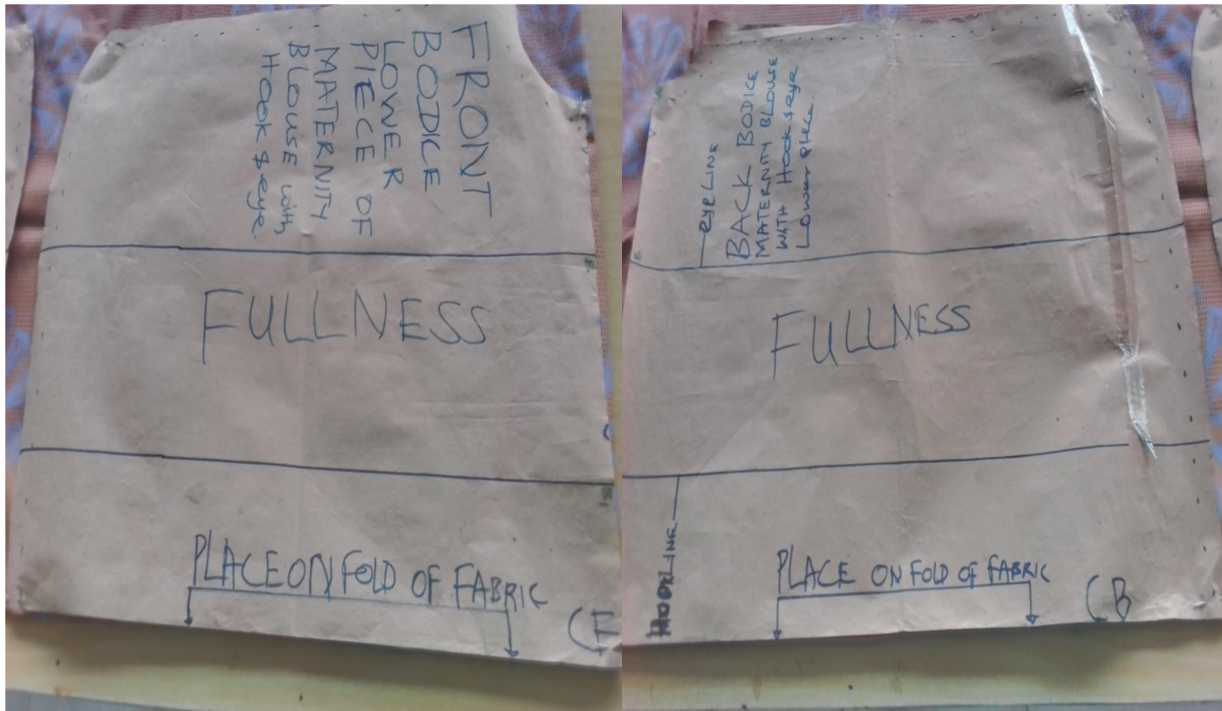 FRONT
BODICE
LOWER
PIECE OF
MATERNITY
BLOUSE with
Hook & eye.
FULLNESS
PLACE ON FOLD OF FABRIC
eye LINE
BACK BODICE
MATERNITY BLOUSE
WITH Hook & eye
Lower Piece
FULLNESS
HOOK LINE
PLACE ON FOLD OF FABRIC
(B